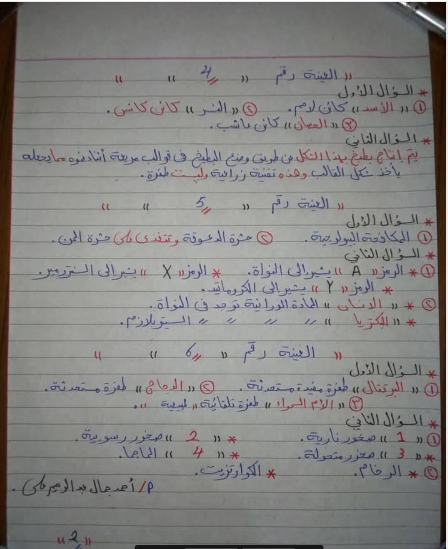 « العينة رقم « 4 » »
* السؤال الأول
① « الأسد » كائن لاحم. ② « النسر » كائن كانس.
③ « الحصان » كائن عاشب.
* السؤال الثاني
يتم إنتاج بطيخ بهذا الشكل عن طريق وضع البطيخ في قوالب مربعة أثناء نموه مما يجعله
يأخذ شكل القالب وهذه تقنية زراعية وليست طفرة.
« العينة رقم « 5 » »
* السؤال الأول
① المكافحة البيولوجية. ② حشرة الدعسوقة وتتغذى على حشرة المن.
* السؤال الثاني
① * الرمز « A » يشير الى النواة. * الرمز « X » يشير الى السنترومير.
* الرمز « Y » يشير الى الكروماتيد.
② * « الإنسان » المادة الوراثية توجد في النواة.
* « البكتريا » " " " " السيتوبلازم.
« العينة رقم « 6 » »
* السؤال الأول
① « البرتقال » طفرة مفيدة مستحدثة. ② « الدجاج » طفرة مستحدثة.
③ « الأغنام السمراء » طفرة تلقائية « طبيعية ».
* السؤال الثاني
① « 1 » صخور نارية. * « 2 » صخور رسوبية.
* « 3 » صخور متحولة. * « 4 » الماجما.
② * الرخام. * الكوارتزيت.
أ/ أحمد جمال عبدالرحيم علي.
« 2 »